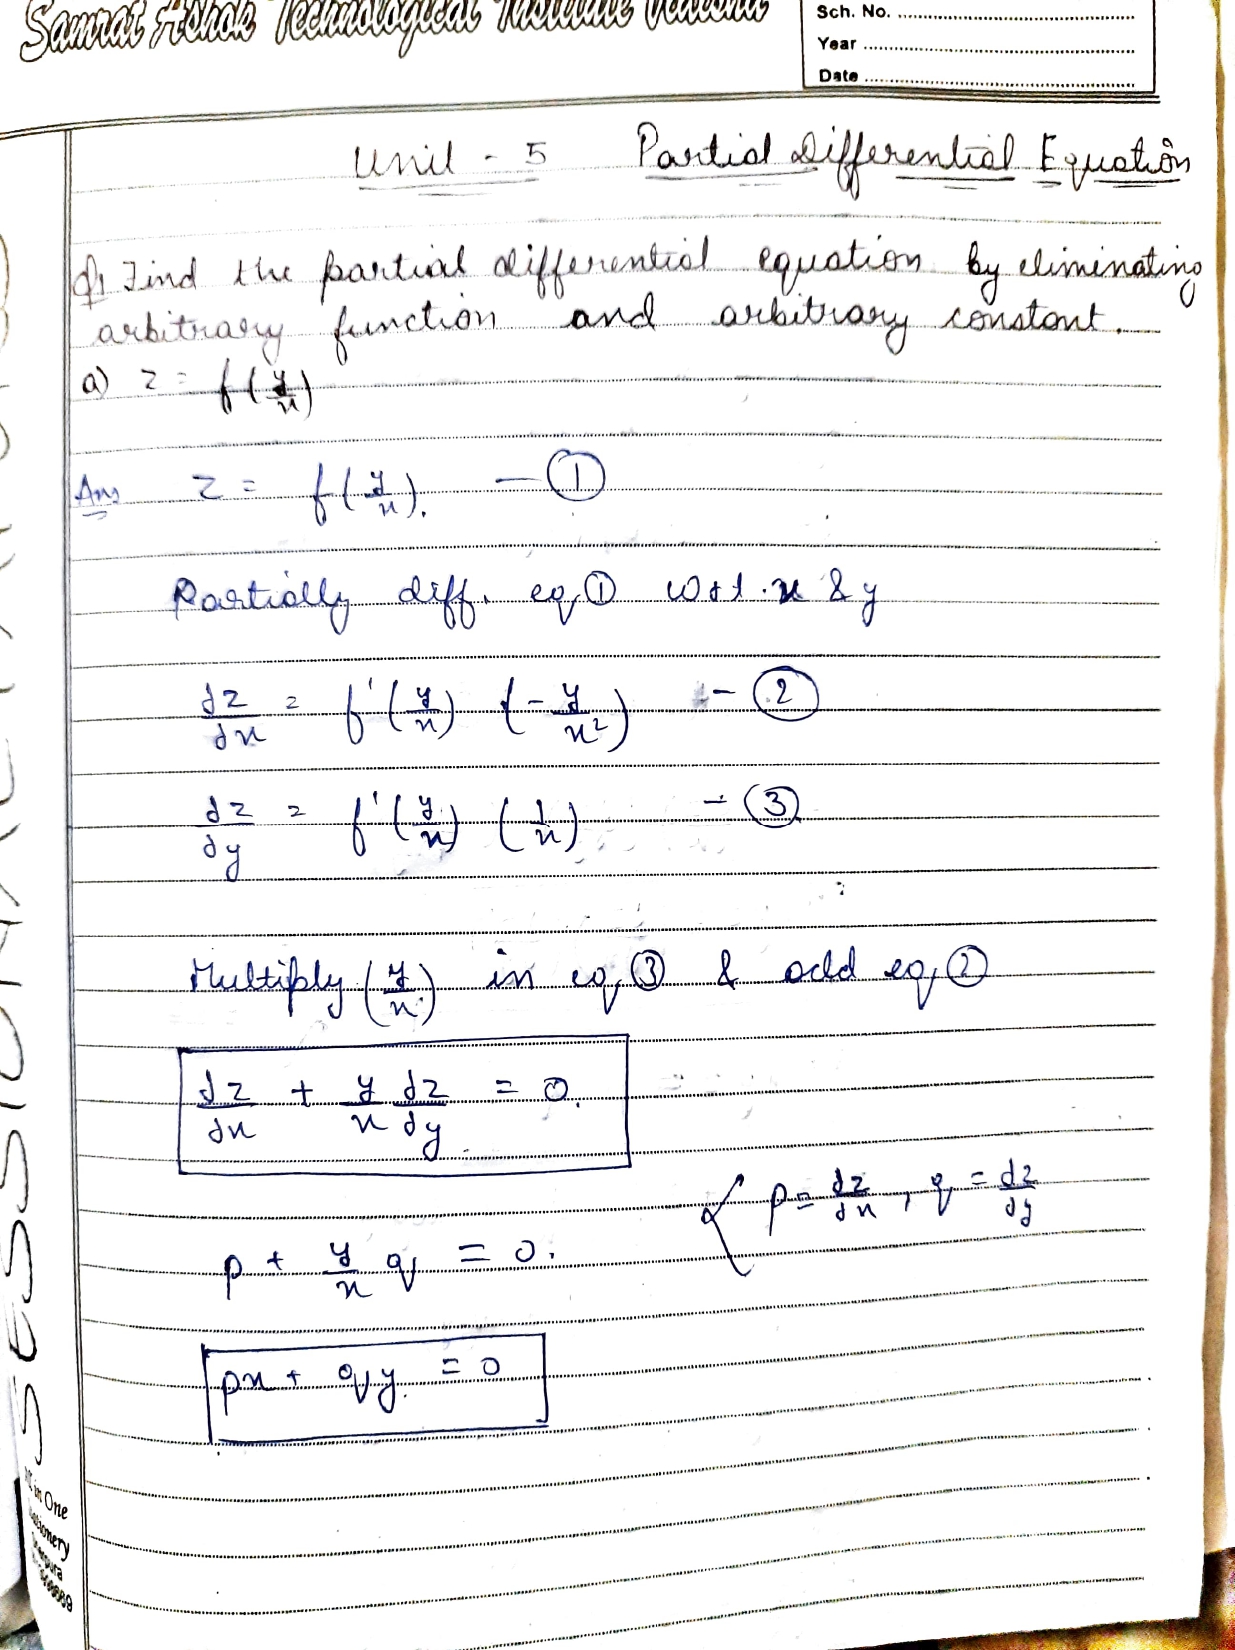 Samrat Ashok Technological Institute Vidisha
Sch. No. ........
Year ........
Date ........
Unit - 5 Partial Differential Equation
Q1 Find the partial differential equation by eliminating
arbitrary function and arbitrary constant.
a) z = f(y/x)
Ans z = f(y/x). - ①
Partially diff. eq ① w.r.t. x & y
∂z/∂x = f'(y/x) (-y/x²) - ②
∂z/∂y = f'(y/x) (1/x) - ③
Multiply (y/x) in eq ③ & add eq ②
∂z/∂x + y/x ∂z/∂y = 0.
{ p = ∂z/∂x , q = ∂z/∂y
p + y/x q = 0.
px + qy = 0
SESSIONAL
in One